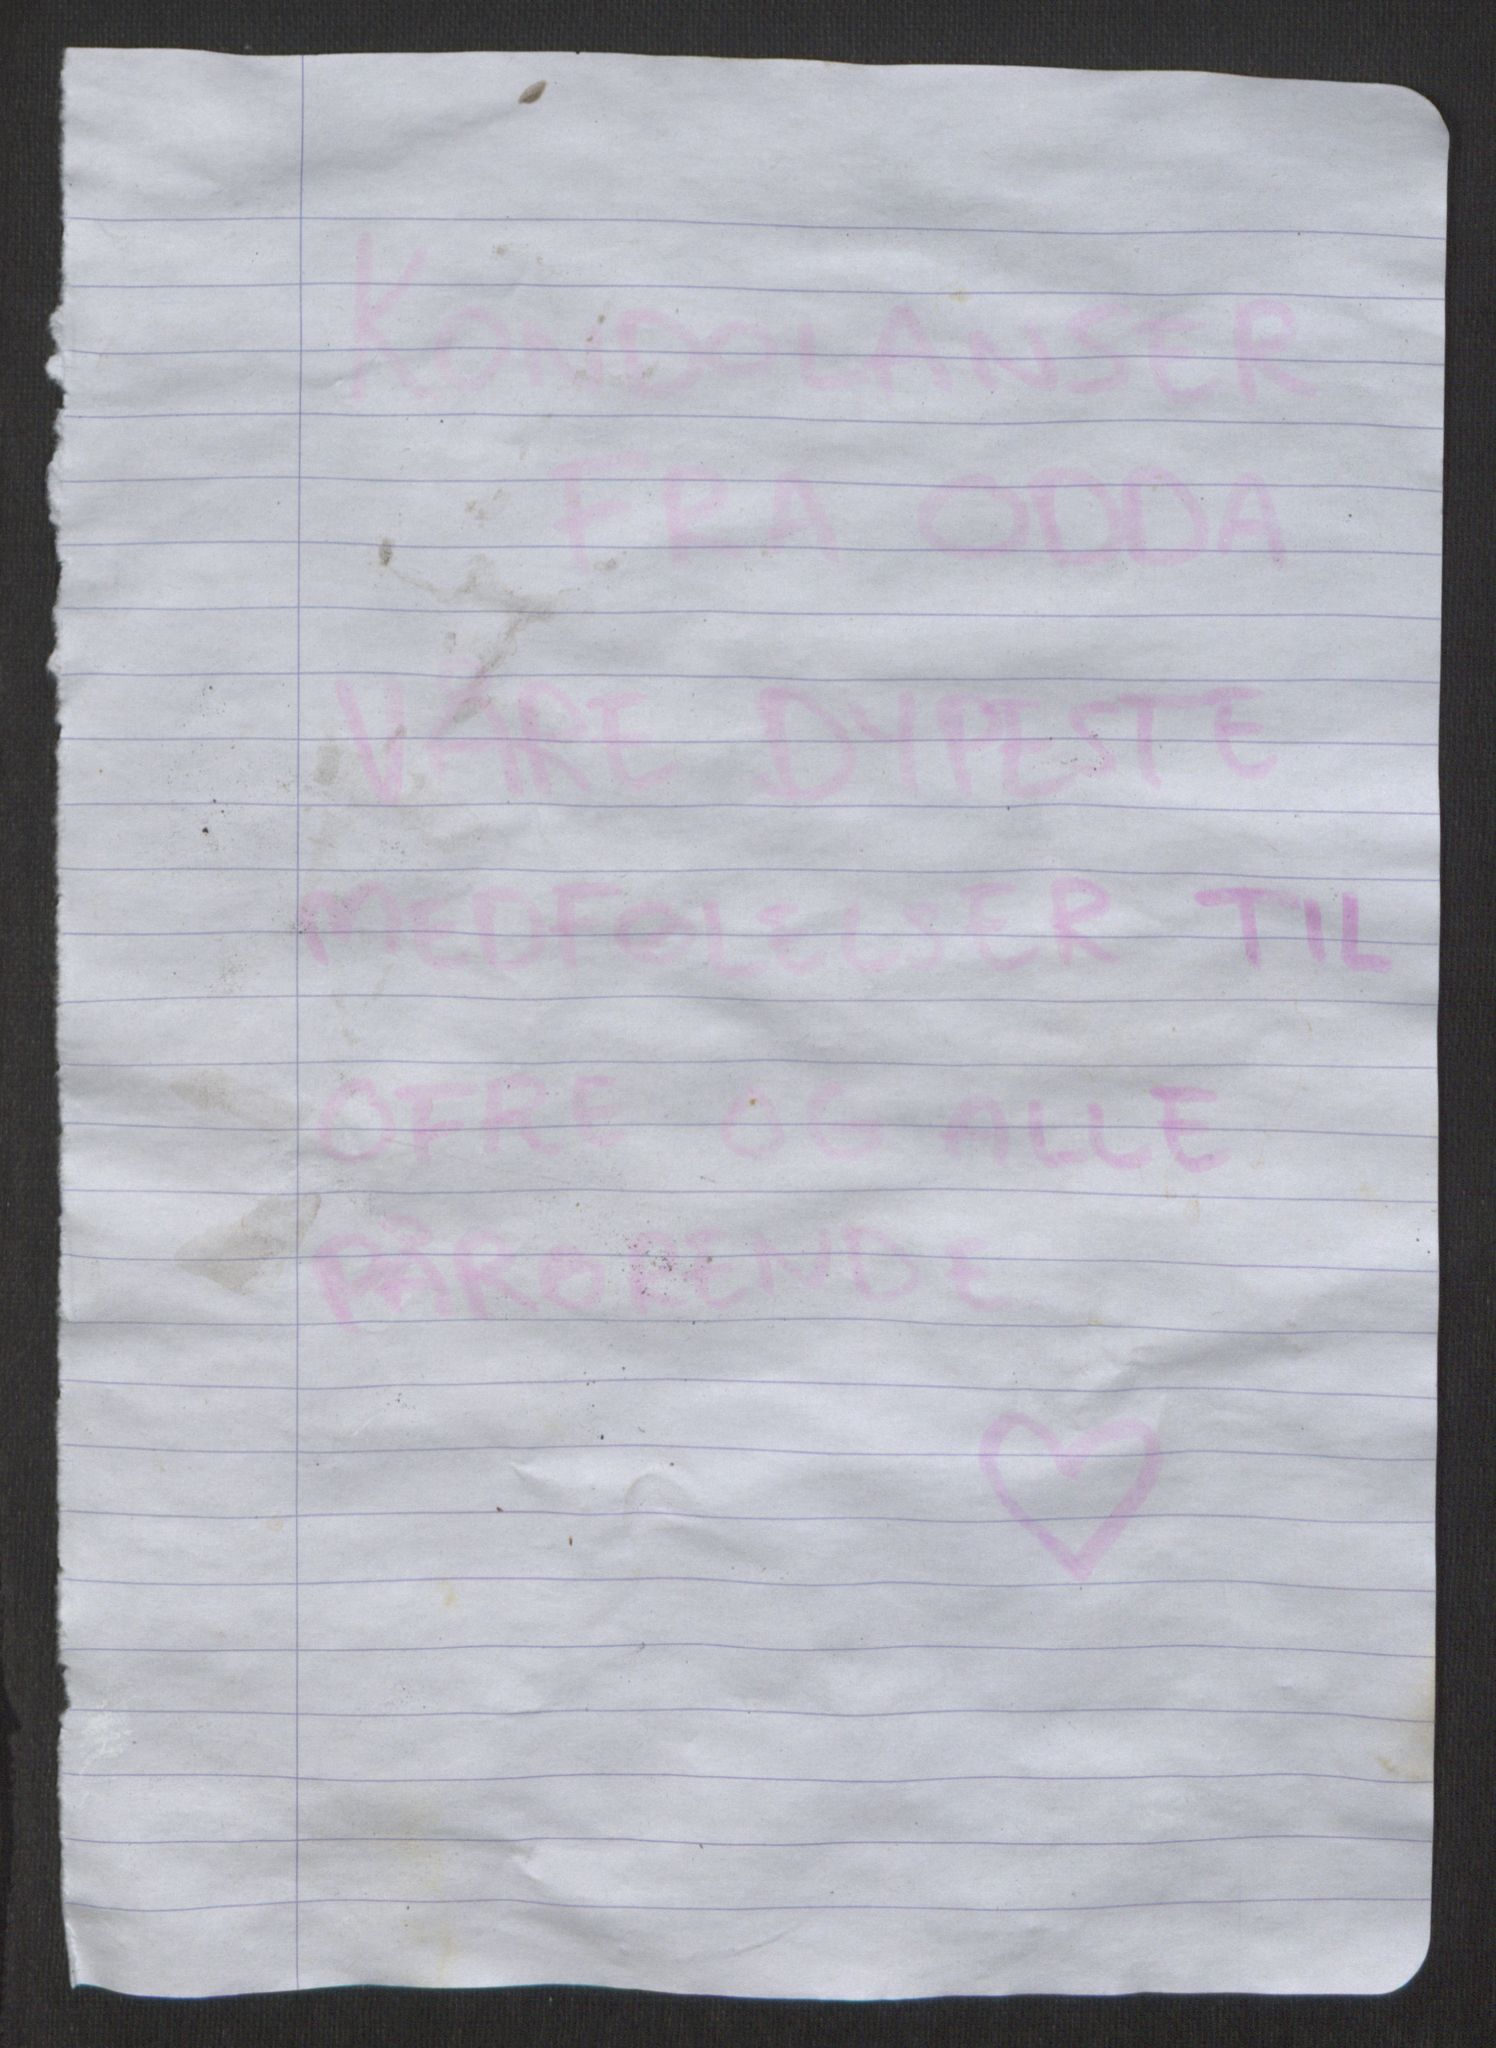 KONDOLANSER
FRA ODDA
VÅRE DYPESTE
MEDFØLELSER TIL
OFRE OG ALLE
PÅRØRENDE